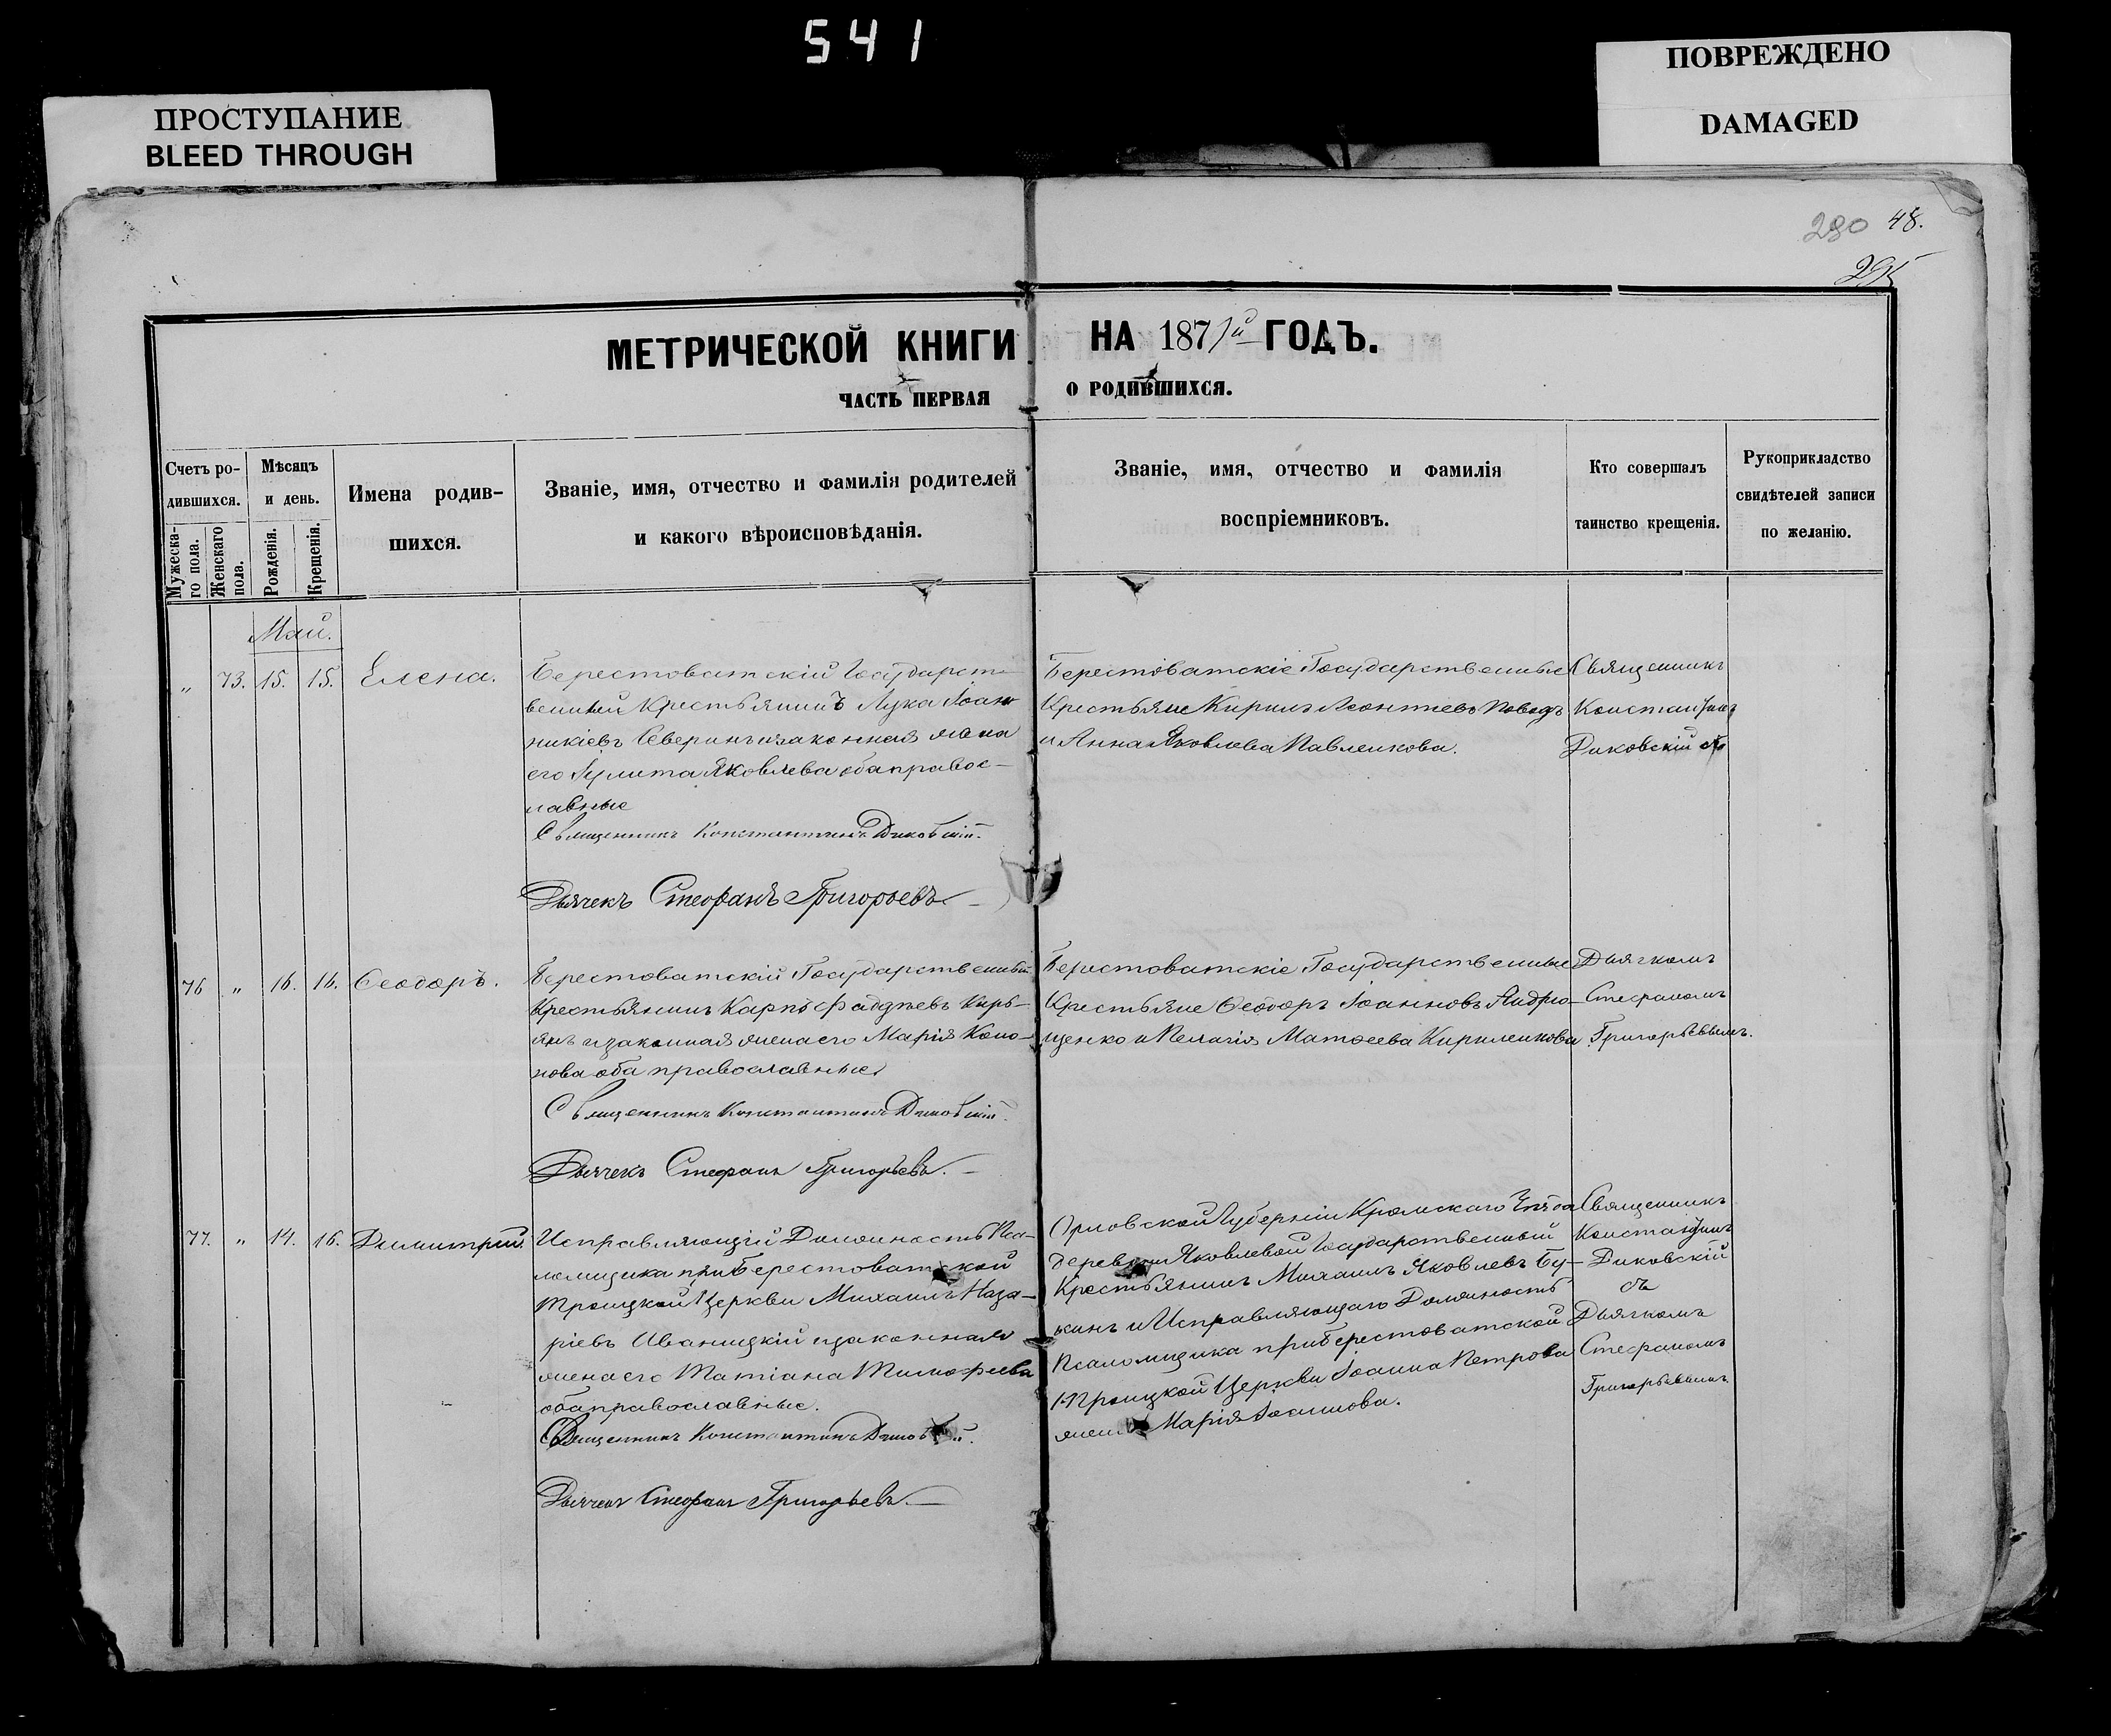 541
ПРОСТУПАНИЕ
BLEED THROUGH
ПОВРЕЖДЕНО
DAMAGED
280 48.
295
МЕТРИЧЕСКОЙ КНИГИ НА 1871й ГОДЪ.
ЧАСТЬ ПЕРВАЯ О РОДИВШИХСЯ.
Счетъ ро-
дившихся.
Мужеска-
го пола.
Женскаго
пола.
Мѣсяцъ
и день.
Рожденія.
Крещенія.
Имена родив-
шихся.
Званіе, имя, отчество и фамилія родителей
и какого вѣроисповѣданія.
Званіе, имя, отчество и фамилія
воспріемниковъ.
Кто совершалъ
таинство крещенія.
Рукоприкладство
свидѣтелей записи
по желанію.
Май.
„ 73. 15. 15. Елена.
Берестоватскій Государст-
венный Крестьянинъ Лука Іоан
никіевъ Северинъ и законная жена
его Іулита Яковлева оба правос-
лавные
Священникъ Константинъ Диковскій.
Дьячекъ Стефанъ Григорьевъ
Берестоватскіе Государственные
Крестьяне Кирилъ Леонтіевъ
и Анна Яковлева Павленкова.
Священникъ
Константинъ
Диковскій
76 „ 16. 16. Ѳеодоръ.
Берестоватскій Государственный
Крестьянинъ Карпъ Кирь-
янъ и законная жена его Марія Коно-
нова оба православные
Священникъ Константинъ Диковскій.
Дьячекъ Стефанъ Григорьевъ.
Берестоватскіе Государственные
Крестьяне Ѳеодоръ Іоанновъ Андрю-
щенко и Пелагія Матѳеева Кириленкова
Дьячкомъ
Стефаномъ
Григорьевымъ.
77. „ 14. 16. Димитрій.
Исправляющій Должность Пса-
ломщика при Берестоватской
Троицкой Церкви Михаилъ Наза-
ріевъ Иваницкій и законная
жена его Татіана Тимофеева
оба православные.
Священникъ Константинъ Диковскій.
Дьячекъ Стефанъ Григорьевъ
Орловской Губерніи Кромскаго Уѣзда
деревни Яковлевой Государственный
Крестьянинъ Михаилъ Яковлевъ Бу-
кинъ и Исправляющаго Должность
Псаломщика при Берестоватской
Троицкой Церкви Іоанна Петрова
жена Марія Іоаннова.
Священникъ
Константинъ
Диковскій
съ
Дьячкомъ
Стефаномъ
Григорьевымъ